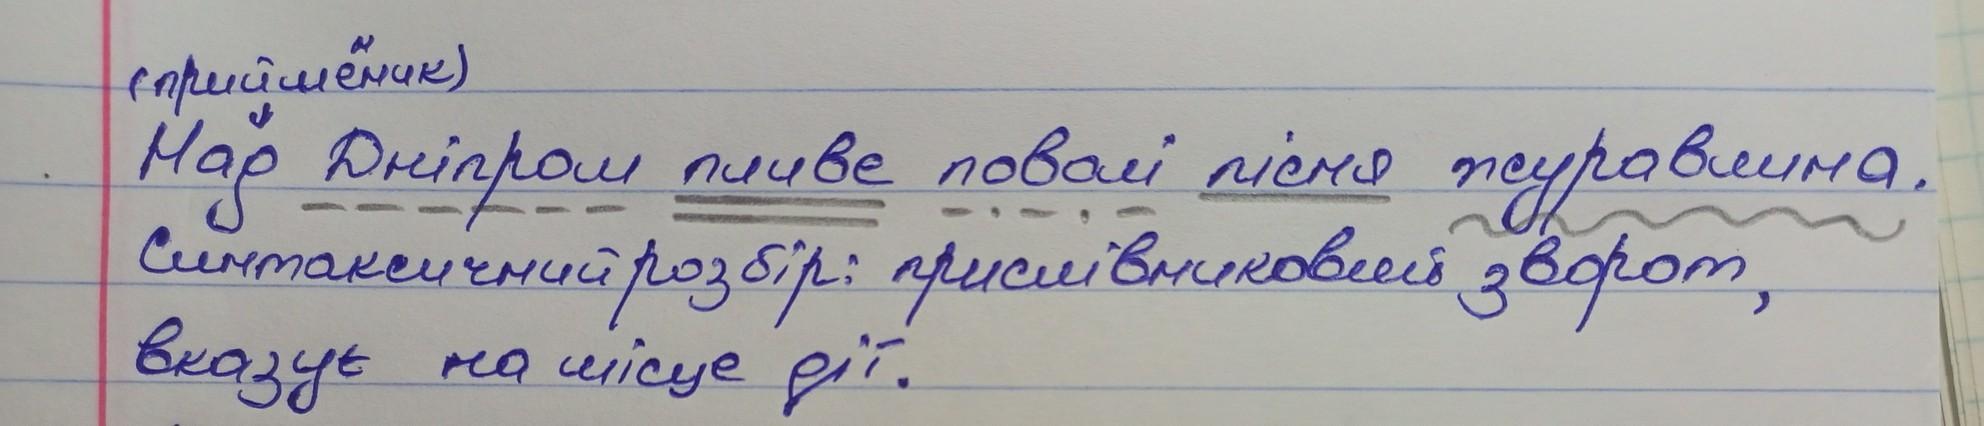 (прийменник)
Над Дніпром пливе поволі пісня журавлина.
Синтаксичний розбір: прислівниковий зворот,
вказує на місце дії.